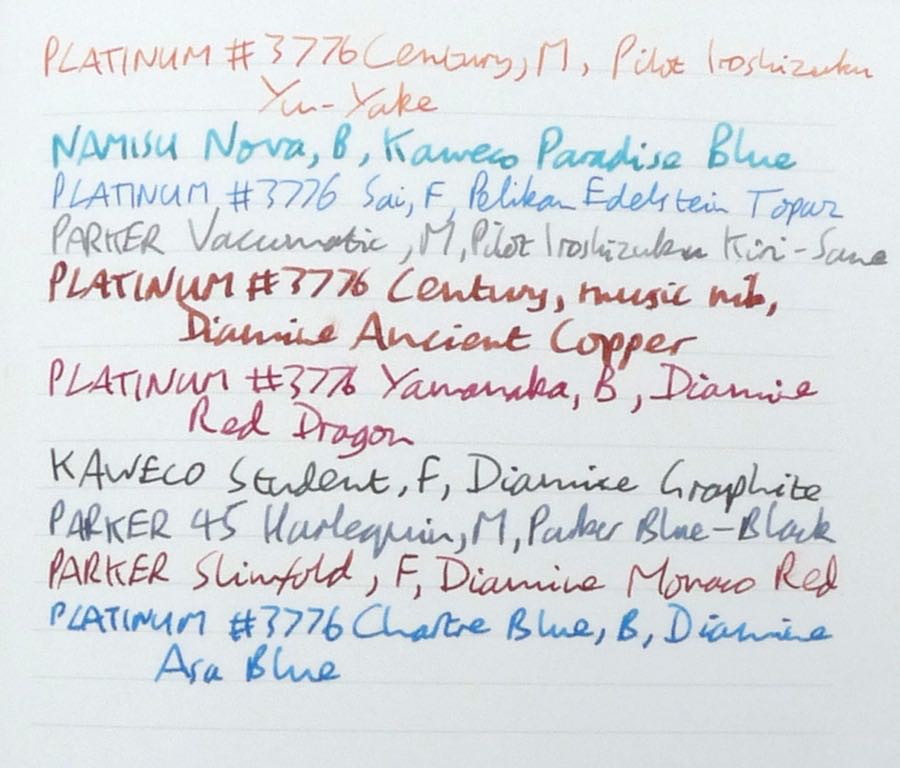 PLATINUM #3776 Century, M, Pilot Iroshizuku
Yu-Yake
NAMISU Nova, B, Kaweco Paradise Blue
PLATINUM #3776 Sai, F, Pelikan Edelstein Topaz
PARKER Vacumatic, M, Pilot Iroshizuku Kiri-Same
PLATINUM #3776 Century, music nib,
Diamine Ancient Copper
PLATINUM #3776 Yamanaka, B, Diamine
Red Dragon
KAWECO Student, F, Diamine Graphite
PARKER 45 Harlequin, M, Parker Blue-Black
PARKER Slimfold, F, Diamine Monaco Red
PLATINUM #3776 Chartre Blue, B, Diamine
Asa Blue